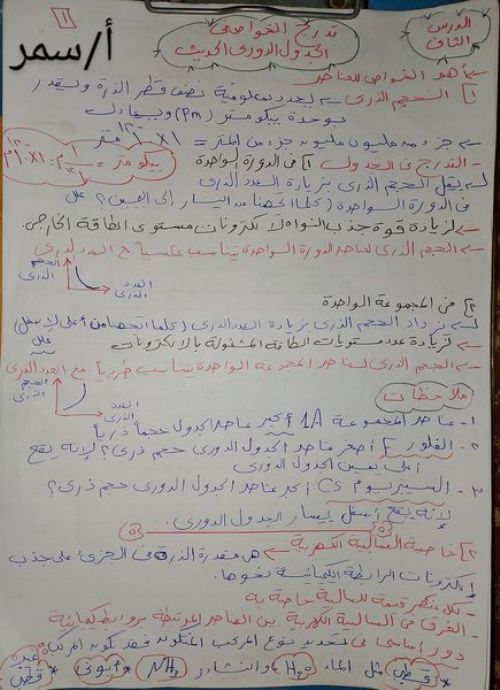 ١
الدرس الثانى
تدرج الخواص فى
الجدول الدورى الحديث
أ/سمر
أهم الخواص للعناصر
١] الحجم الذرى ← يحدد بمعلومية نصف قطر الذرة ويقدر
بوحدة بيكومتر (pm) ويعادل
جزء من مليون مليون جزء من المتر = ١ × ١٠-١٢ متر
التدرج فى الجدول ١] فى الدورة الواحدة
يقل الحجم الذرى بزيادة العدد الذرى
فى الدورة الواحدة (كلما اتجهنا من اليسار إلى اليمين) علل
لزيادة قوة جذب النواة لإلكترونات مستوى الطاقة الخارجى
الحجم الذرى لعناصر الدورة الواحدة يتناسب عكسياً مع العدد الذرى
الحجم الذرى
العدد الذرى
٢] فى المجموعة الواحدة
يزداد الحجم الذرى بزيادة العدد الذرى (كلما اتجهنا من أعلى لأسفل) علل
لزيادة عدد مستويات الطاقة المشغولة بالإلكترونات
الحجم الذرى لعناصر المجموعة الواحدة يتناسب طردياً مع العدد الذرى
الحجم الذرى
العدد الذرى
ملاحظات
١- عناصر المجموعة 1A أكبر عناصر الجدول حجماً ذرياً
٢- الفلور F أصغر عناصر الجدول الدورى حجم ذرى؟ لإنه يقع
أعلى يمين الجدول الدورى
٣- السيزيوم Cs أكبر عناصر الجدول الدورى حجم ذرى؟
لإنه يقع أسفل يسار الجدول الدورى.
٢] خاصية السالبية الكهربية
هى مقدرة الذرة فى الجزئ على جذب
إلكترونات الرابطة الكيميائية نحوها.
- لكل عنصر قيمة للسالبية خاصة به
- الفرق فى السالبية الكهربية بين العناصر المرتبطة بروابط كيميائية
دور أساسى فى تحديد نوع المركب المتكون فقد يكون المركب
* قطبى مثل الماء H₂O وانشادر NH₃ * أيونى * غير قطبى